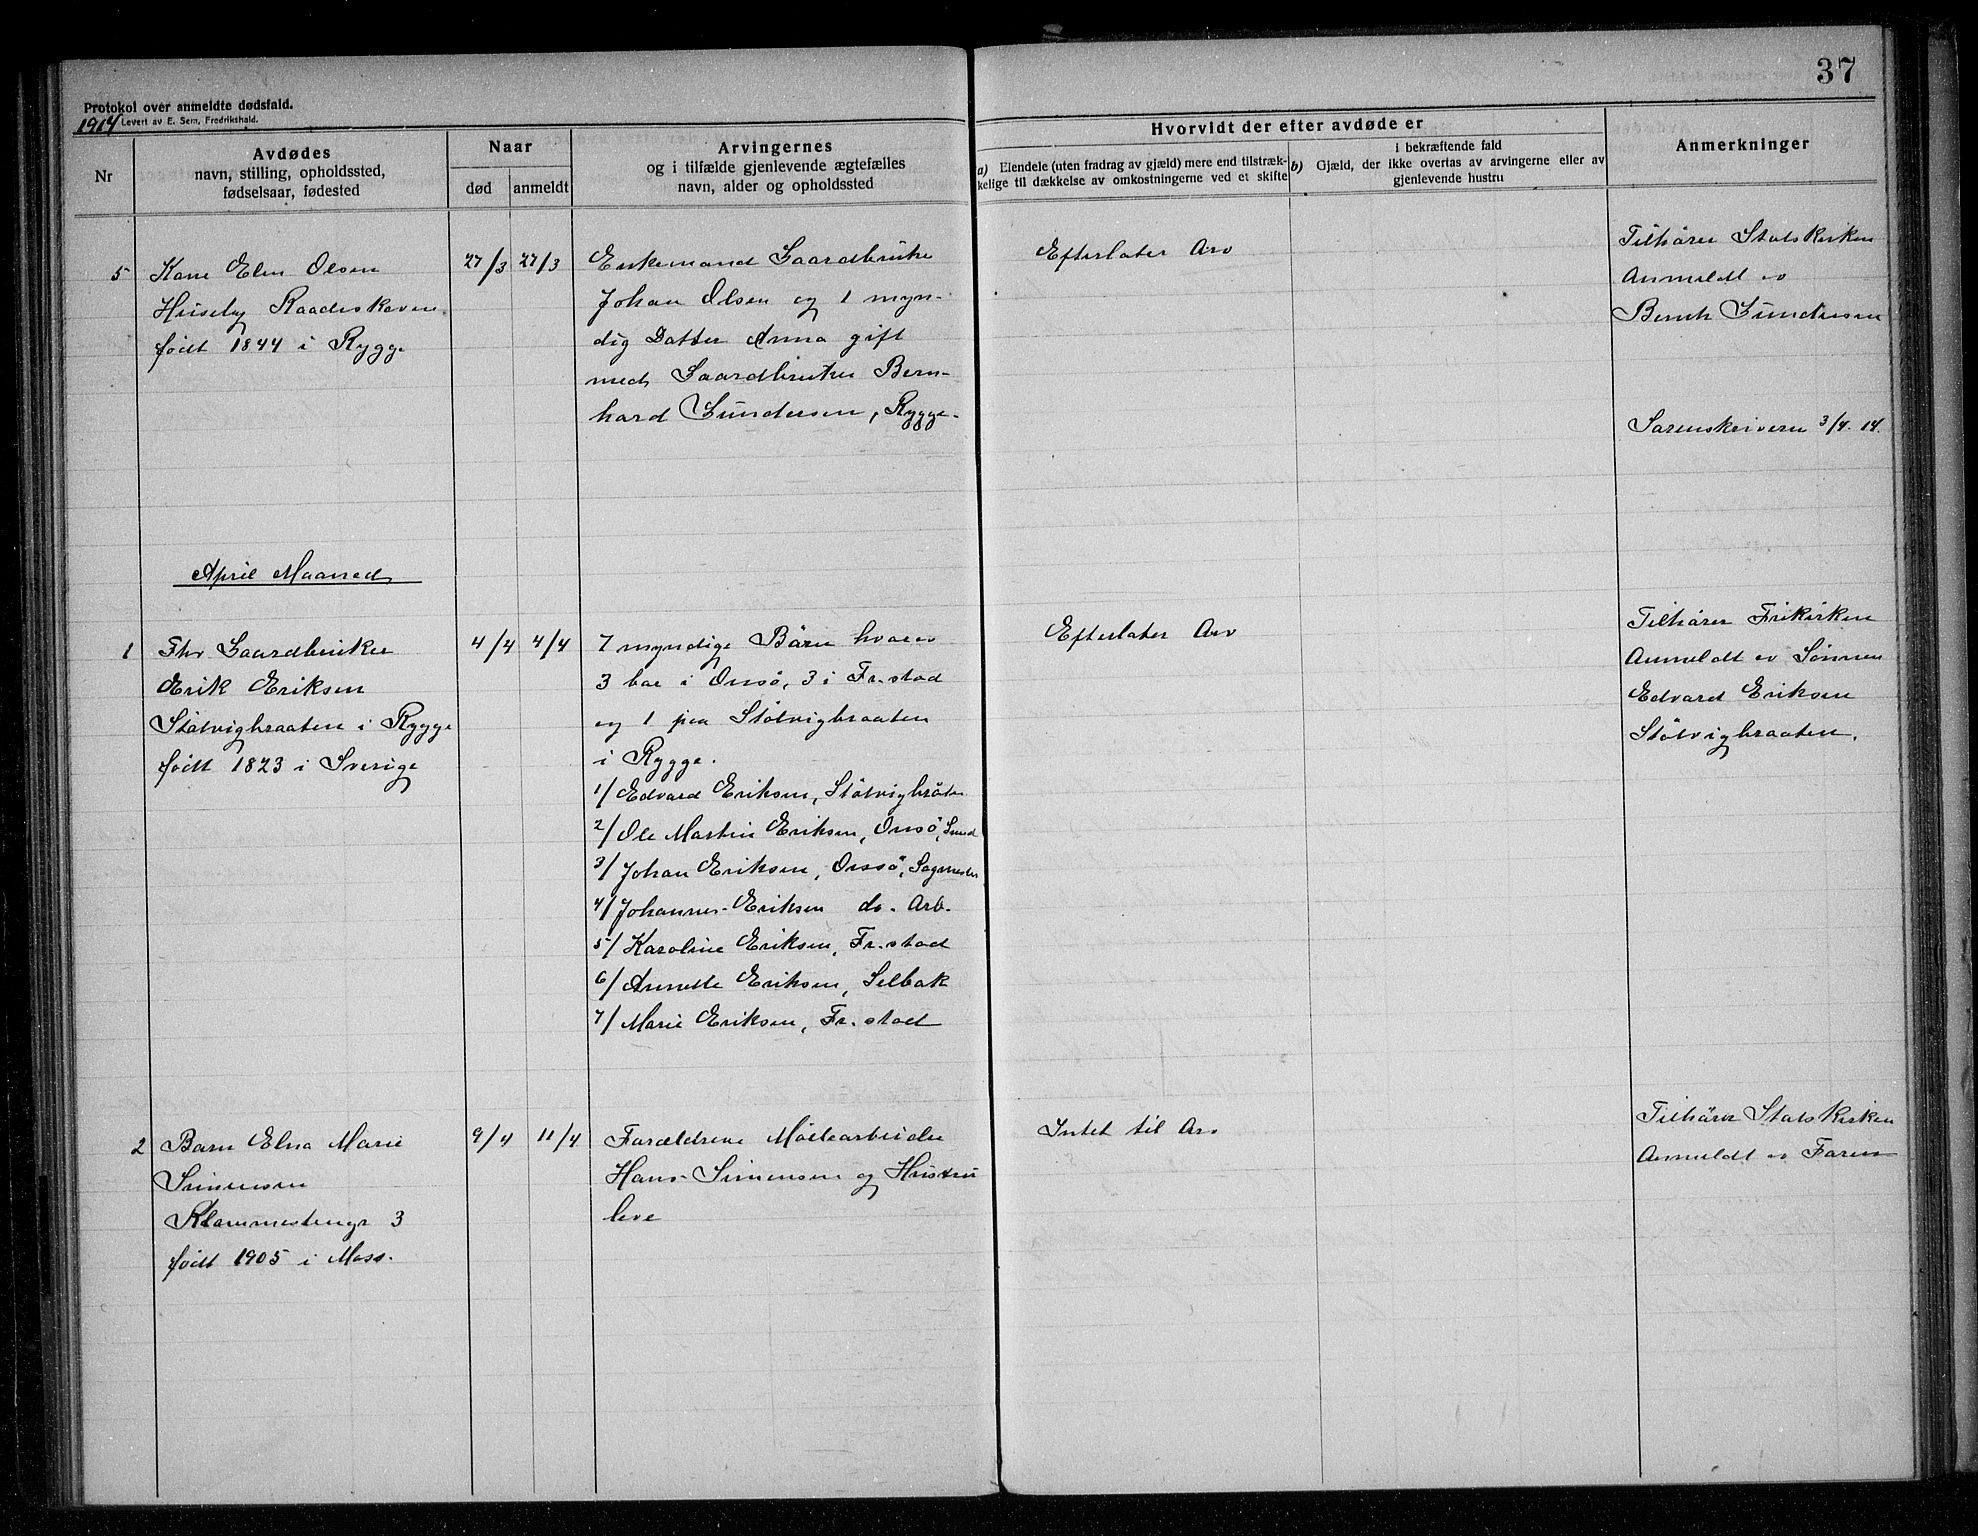 37
Protokol over anmeldte dødsfald.
1914 Levert av E. Sem, Fredrikshald.
Nr
Avdødes
navn, stilling, opholdssted,
fødselsaar, fødested
Naar
død anmeldt
Arvingernes
og i tilfælde gjenlevende ægtefælles
navn, alder og opholdssted
Hvorvidt der efter avdøde er
a) Eiendele (uten fradrag av gjæld) mere end tilstræk-
kelige til dækkelse av omkostningerne ved et skifte
i bekræftende fald
b) Gjæld, der ikke overtas av arvingerne eller av
gjenlevende hustru
Anmerkninger
5 Kone Elen Olsen
Huseby Raadeskoven
født 1844 i Rygge
27/3 27/3
Enkemand Gaardbruker
Johan Olsen og 1 myn-
dig Datter Anna gift
med Gaardbruker Bern-
hard Gundersen, Rygge-
Efterlater Arv
Tilhører Statskirken
Anmeldt av
Bernh Gundersen
Sorenskriveren 3/4. 14.
April Maaned
1 Fhv Gaardbruker
Erik Eriksen
Støtvigbraaten i Rygge
født 1823 i Sverige
4/4 4/4
7 myndige Børn hvorav
3 bor i Onsø, 3 i Fr.stad
og 1 paa Støtvigbraaten
i Rygge.
1/ Edvard Eriksen, Støtvigbråten
2/ Ole Martin Eriksen, Onsö, Smed
3/ Johan Eriksen, Onsö, Sagmester
4/ Johannes Eriksen do. Arb.
5/ Karoline Eriksen, Fr.stad
6/ Annette Eriksen, Selbak
7/ Marie Eriksen, Fr.stad
Efterlater Arv
Tilhører Frikirken
Anmeldt av Sønnen
Edvard Eriksen
Støtvigbraaten.
2 Barn Elna Marie
Simensen
Klommestengt 3
født 1905 i Moss.
9/4 11/4
Forældrene Møllearbeider
Hans Simensen og Hustru
leve
Intet til Arv
Tilhører Statskirken
Anmeldt av Faren